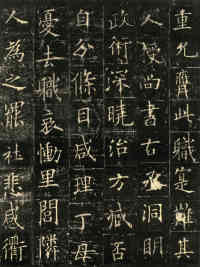 重允釐此職寔難其
人授尚書右丞洞明
政術深曉治方臧否
自分條目咸理丁母
憂去職哀慟里閭隣
人為之罷社悲感衢